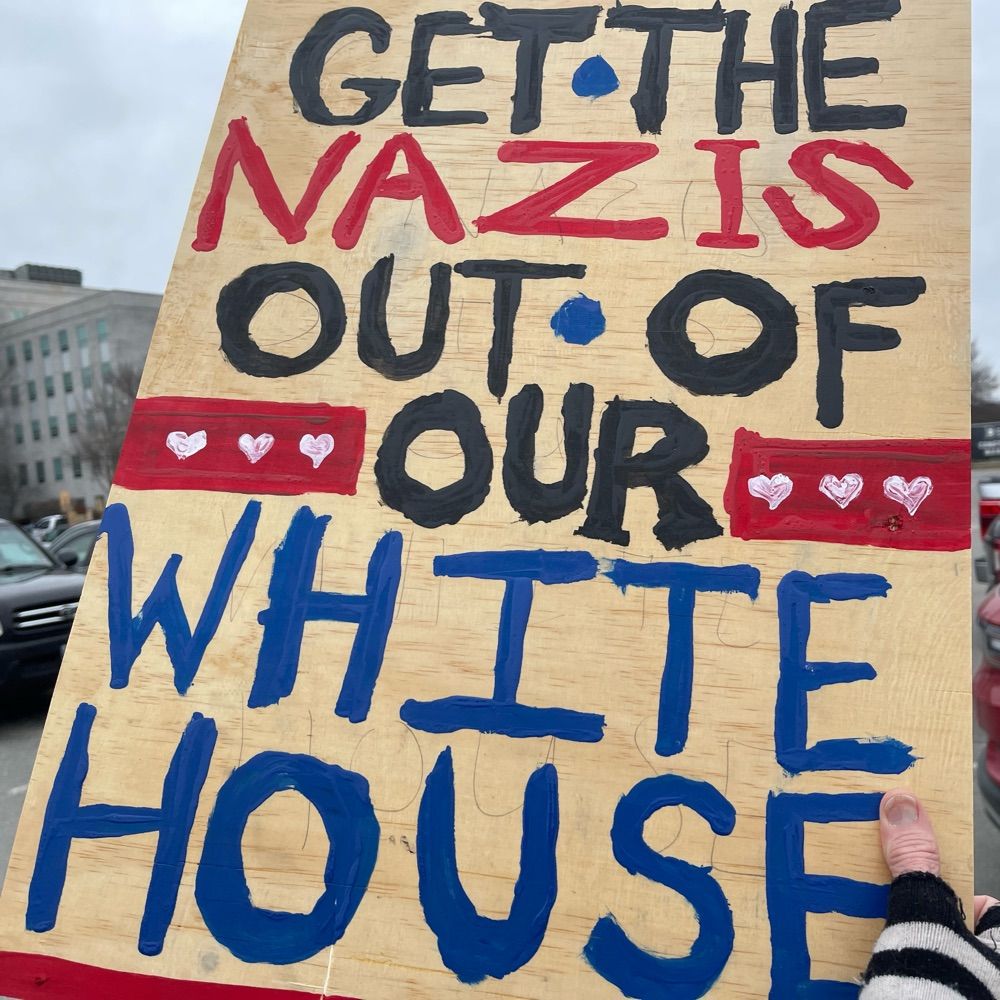 GET•THE
NAZIS
OUT•OF
OUR
WHITE
HOUSE